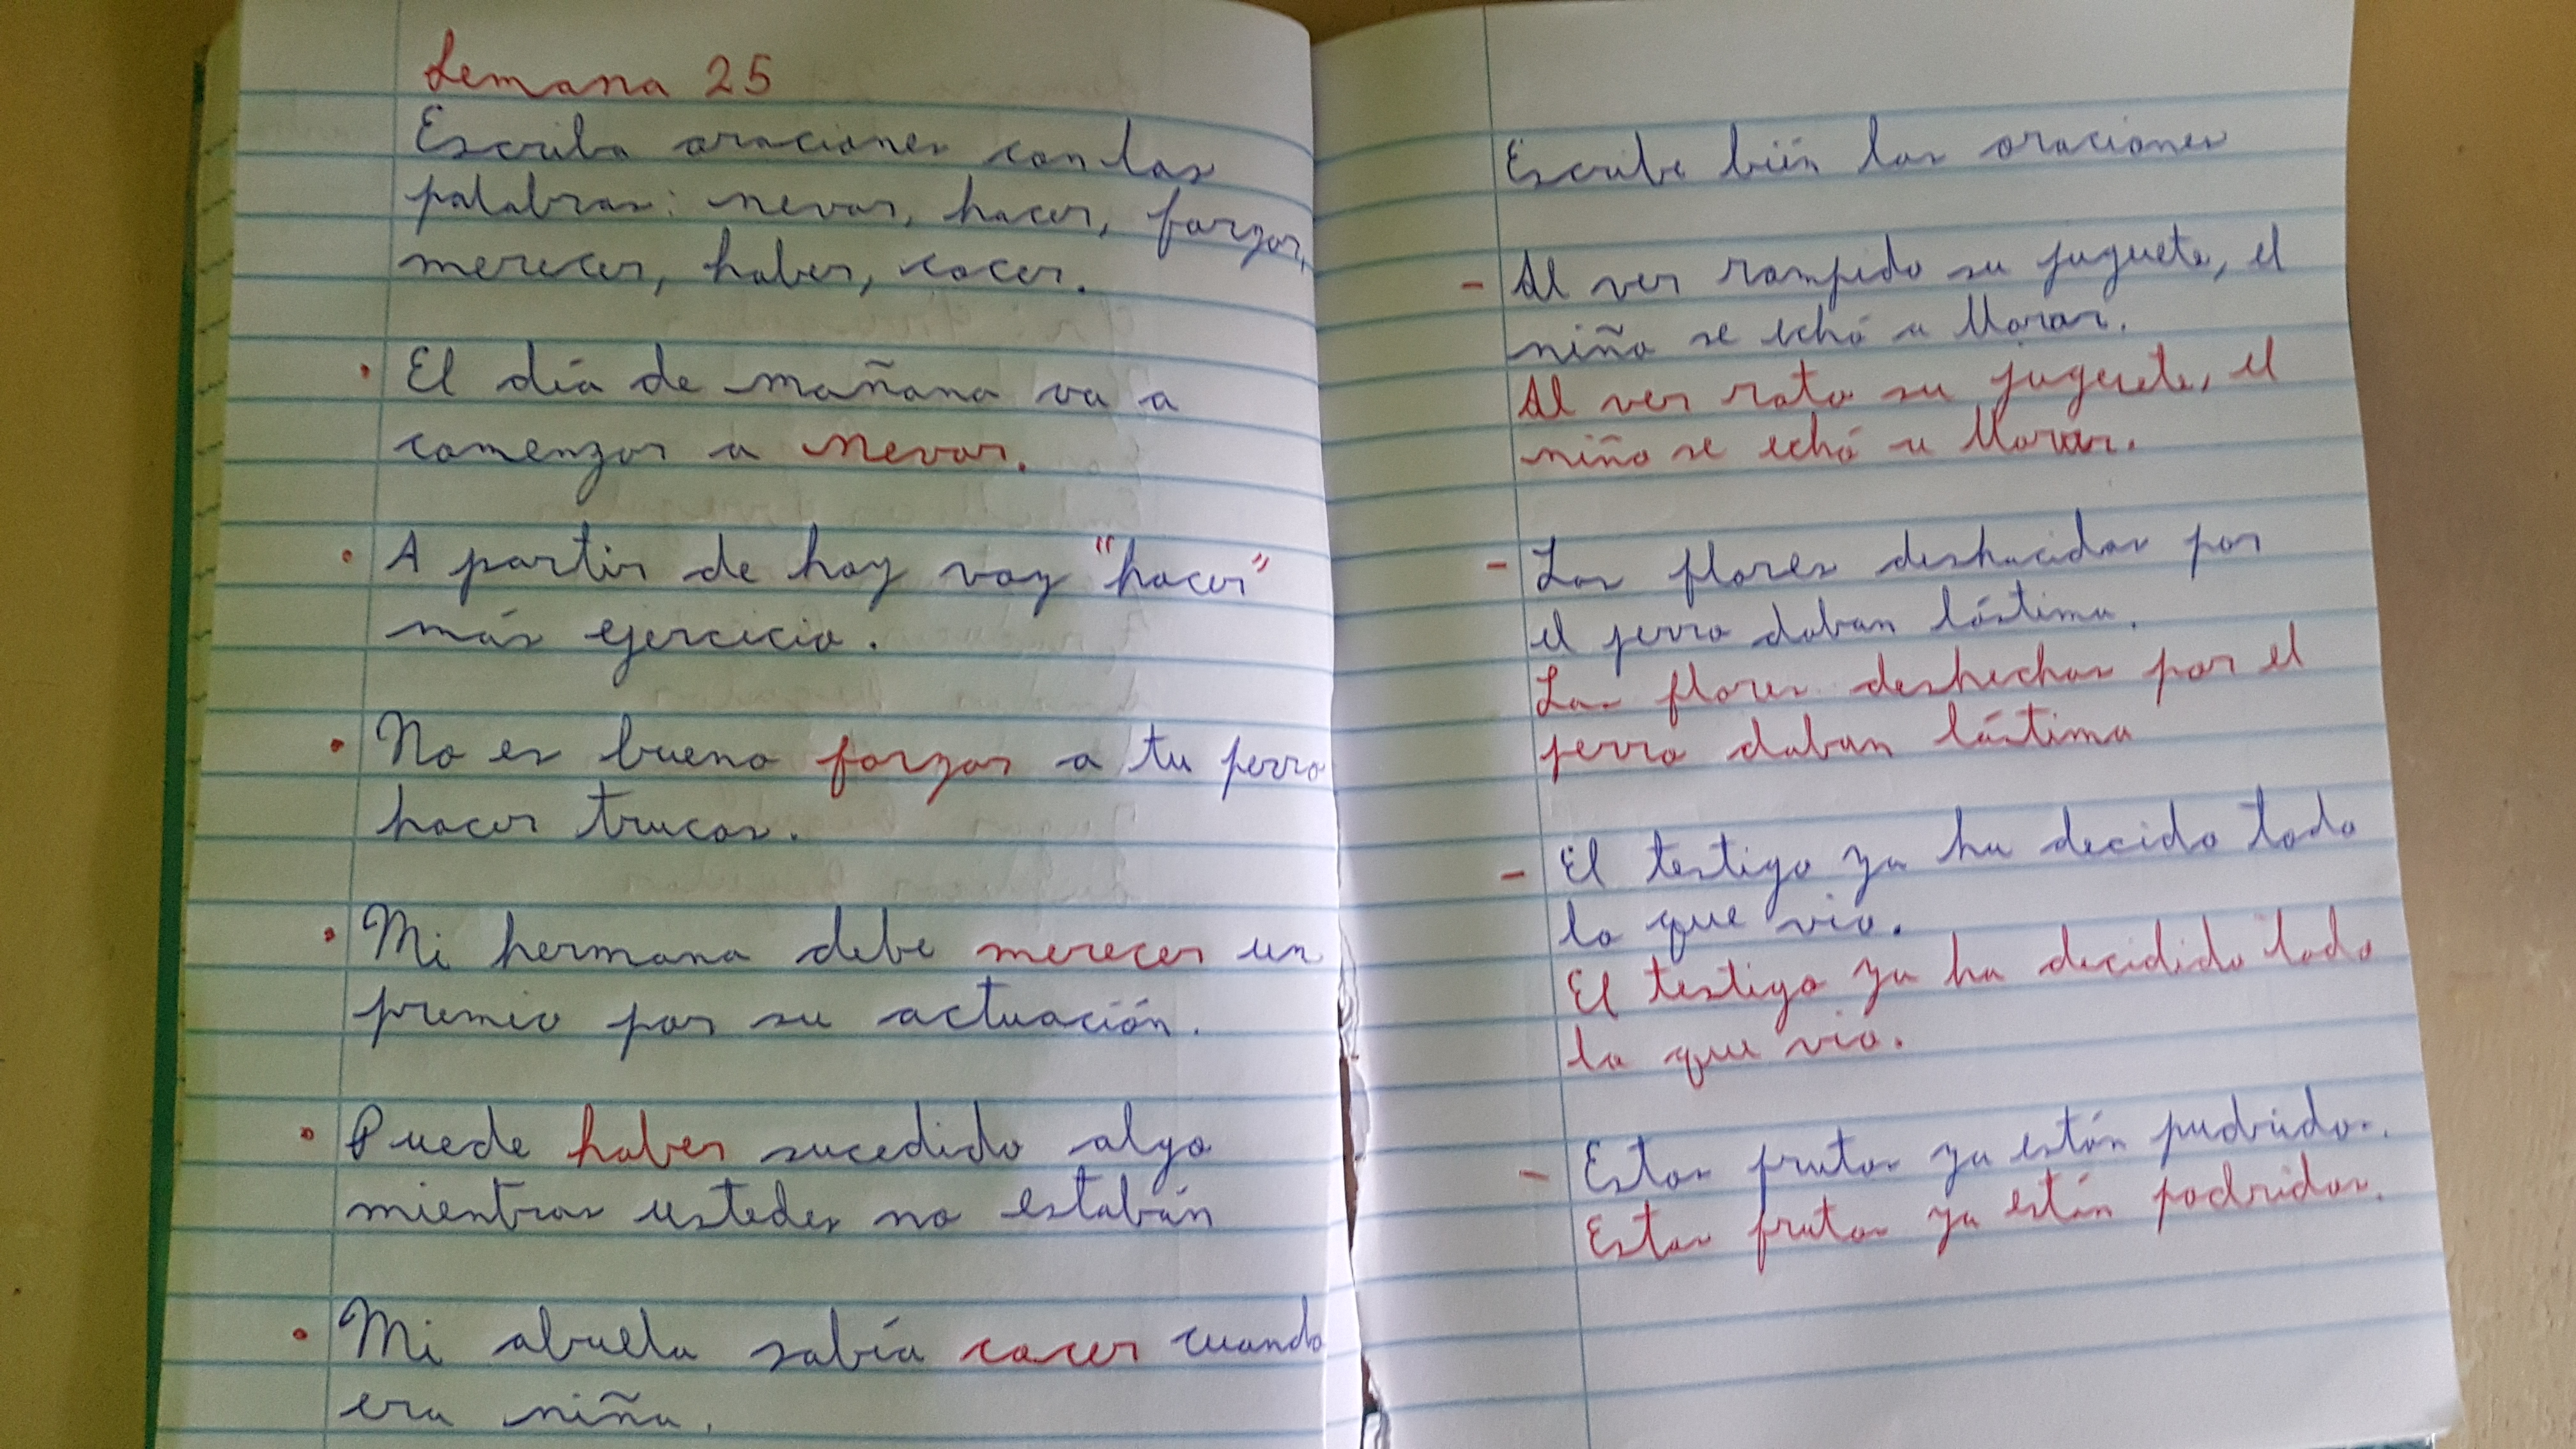 Semana 25
Escriba oraciones con las
palabras: nevar, hacer, forzar,
merecer, haber, cocer.
• El día de mañana va a
comenzar a nevar.
• A partir de hoy voy "hacer"
más ejercicio.
• No es bueno forzar a tu perro
hacer trucos.
• Mi hermana debe merecer un
premio por su actuación.
• Puede haber sucedido algo
mientras ustedes no estabán
• Mi abuela sabía cocer cuando
era niña.
Escribe bién las oraciones
- Al ver rompido su juguete, el
niño se echó a llorar.
Al ver roto su juguete, el
niño se echó a llorar.
- Las flores deshacidas por
el perro daban lástima.
Las flores deshechas por el
perro daban lástima
- El testigo ya ha decido todo
lo que vio.
El testigo ya ha decidido todo
lo que vio.
- Estas frutas ya están pudridas.
Estas frutas ya están podridas.